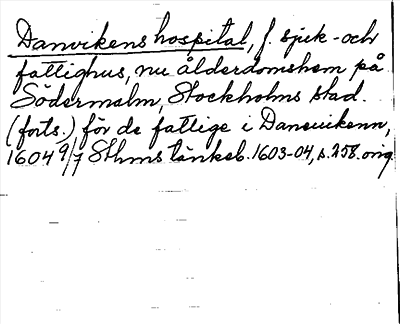 Danvikens hospital, f. sjuk- och
fattighus, nu ålderdomshem på
Södermalm, Stockholms stad.
(forts.) för de fattige i Danuikenn,
1604 9/7 Sthms tänkeb. 1603-04, s. 258. orig